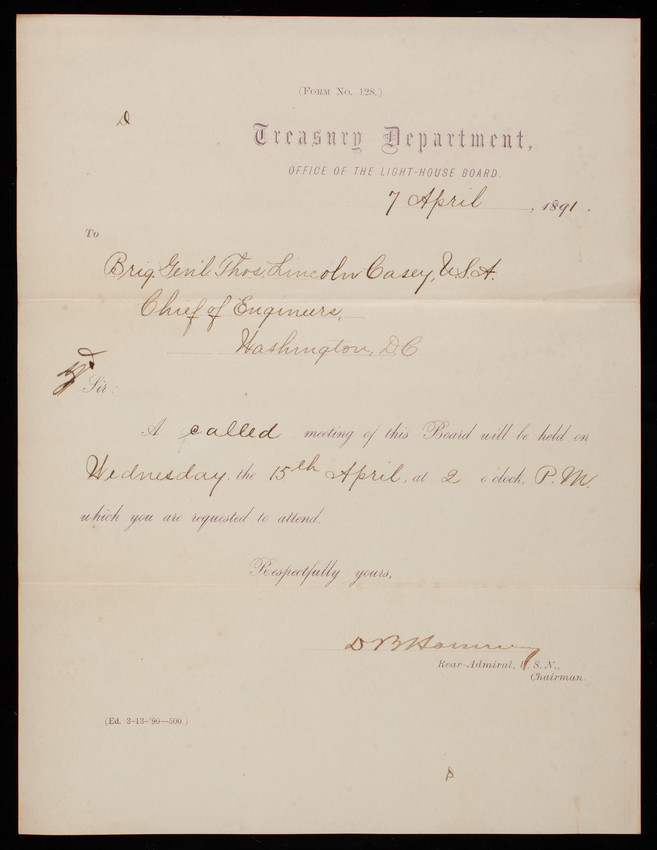 (Form No. 128.)
Treasury Department,
OFFICE OF THE LIGHT-HOUSE BOARD.
7 April, 1891.
To
Brig. Gen'l. Thos. Lincoln Casey, U.S.A.
Chief of Engineers,
Washington, D.C
Sir:
A called meeting of this Board will be held on
Wednesday, the 15th April, at 2 o'clock, P.M.
which you are requested to attend.
Respectfully yours,
D B Harmony
Rear-Admiral, U. S. N.,
Chairman.
(Ed. 2-13-'90—500.)